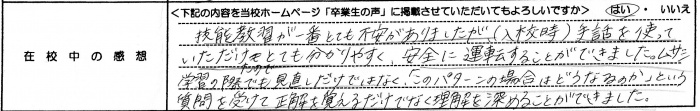 <下記の内容を当校ホームページ「卒業生の声」に掲載させていただいてもよろしいですか> はい ・ いいえ
在校中の感想
技能教習が一番とても不安がありましたが(入校時)手話を使って
いただけとても分かりやすく、安全に運転することができました。ムサシ
学習の際でも見直しだけではなく、「このパターンの場合はどうなるのか」という
質問を受けて正解を覚えるだけでなく理解を深めることができました。